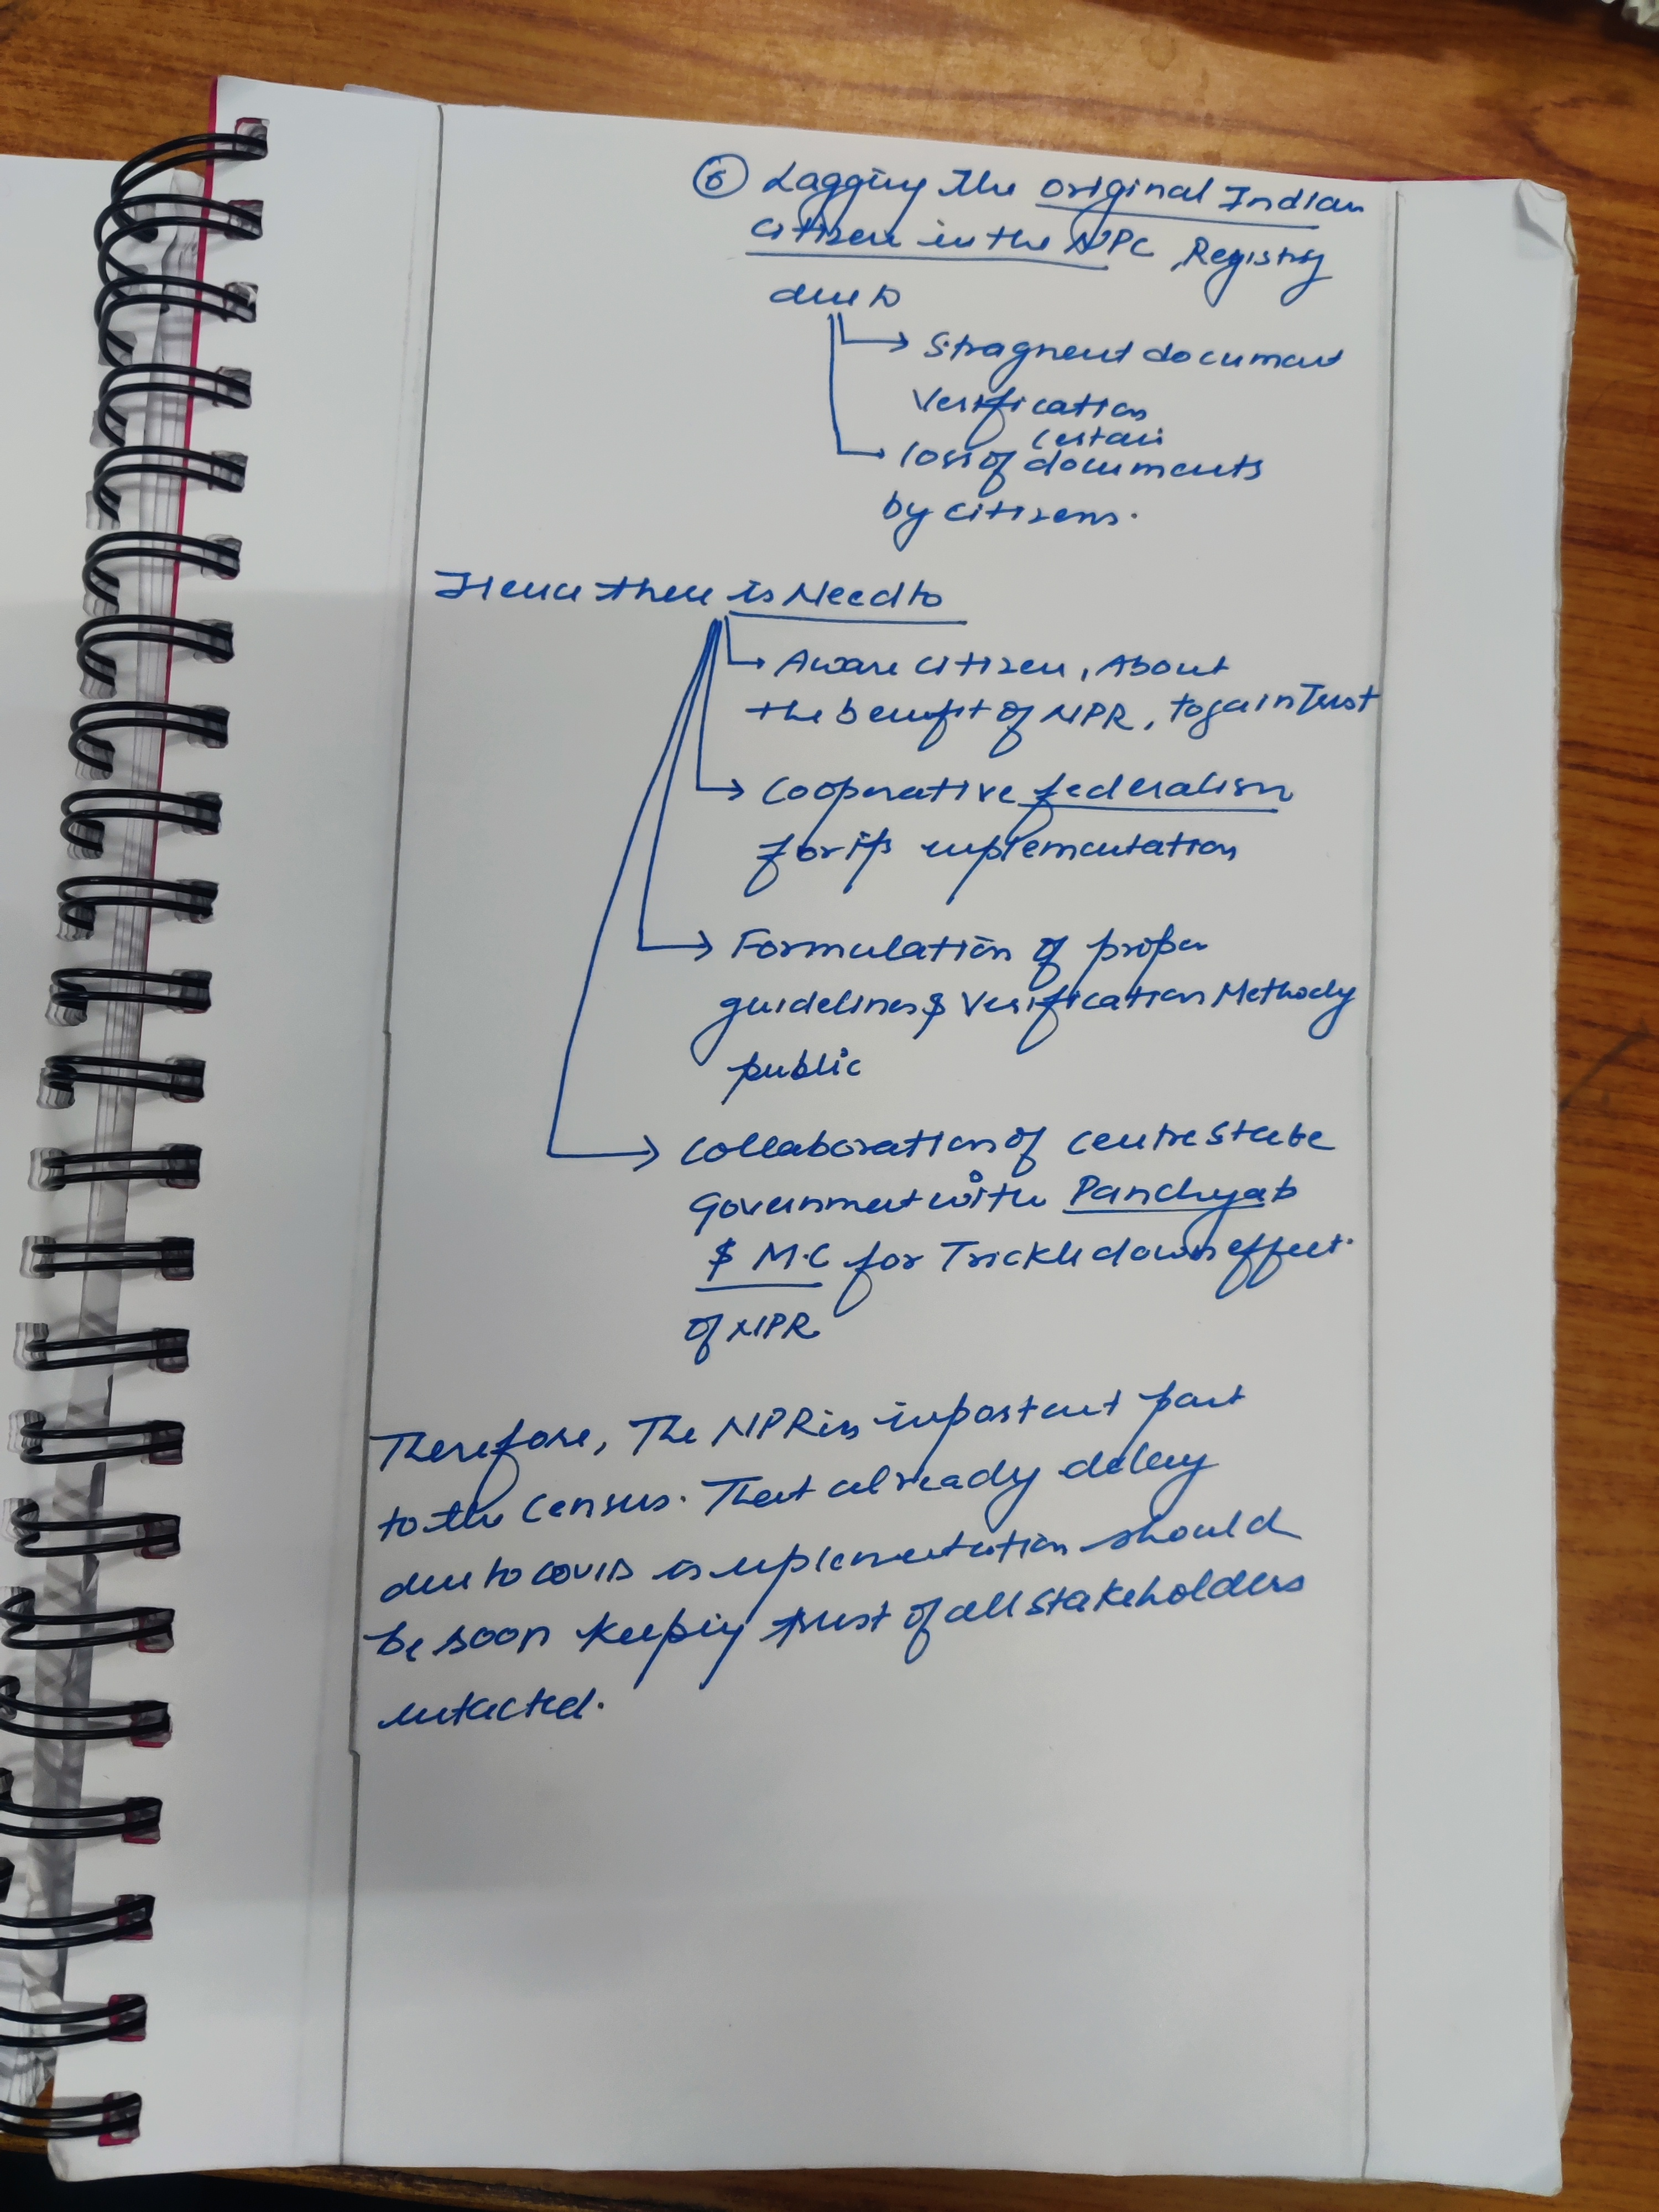 ⑥ Lagging the original Indian
citizen in the NPC, Registry
due to
→ Stragnent document
verification
certain
→ loss of documents
by citizens.
Hence there is Need to
→ Aware citizen, About
the benefit of NPR, to gain Trust
→ Cooperative federalism
for its implementation
→ Formulation of proper
guidelines & Verification Method by
public
→ Collaboration of centre state
Government with Panchyat
& M.C for Trickle down effect.
of NPR
Therefore, The NPR is important part
to the Census. That already delay
due to covid implementation should
be soon keeping trust of all stakeholders
intacted.